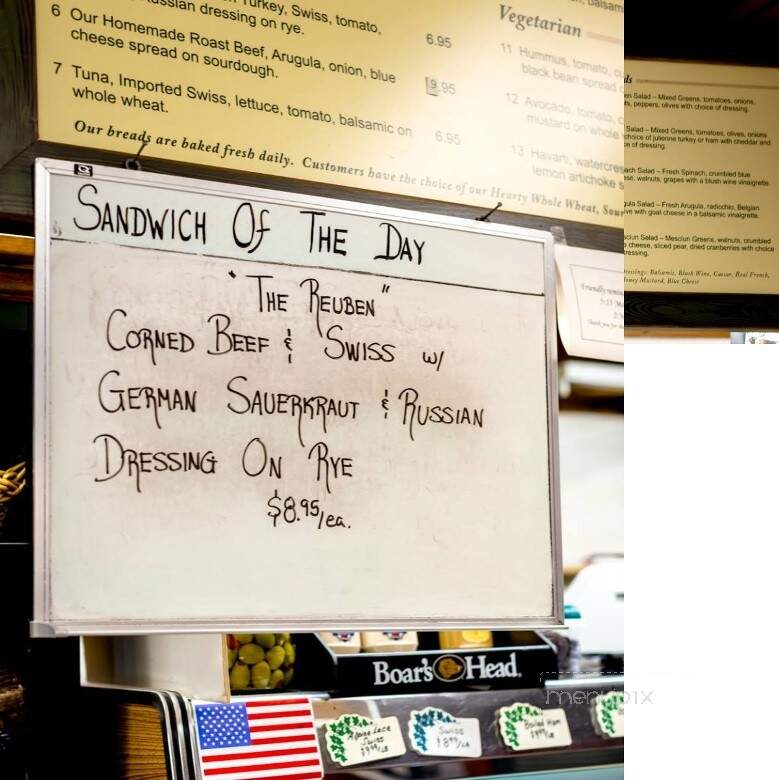 Turkey, Swiss, tomato,
Russian dressing on rye.
6.95
6 Our Homemade Roast Beef, Arugula, onion, blue
cheese spread on sourdough.
9.95
7 Tuna, Imported Swiss, lettuce, tomato, balsamic on
whole wheat.
6.95
Our breads are baked fresh daily. Customers have the choice of our Hearty Whole Wheat,
Vegetarian
11 Hummus, tomato,
black bean spread
12 Avocado, tomato,
mustard on whole
13 Havarti, watercress
lemon artichoke
Salad – Mixed Greens, tomatoes, onions,
peppers, olives with choice of dressing.
Salad – Mixed Greens, tomatoes, olives, onions
choice of julienne turkey or ham with cheddar and
of dressing.
Salad – Fresh Spinach, crumbled blue
walnuts, grapes with a blush wine vinaigrette.
Salad – Fresh Arugula, radicchio, Belgian
with goat cheese in a balsamic vinaigrette.
Salad – Mesclun Greens, walnuts, crumbled
cheese, sliced pear, dried cranberries with choice
dressing.
Balsamic, Blush Wine, Caesar, Real French,
Honey Mustard, Blue Cheese
SANDWICH OF THE DAY
"THE REUBEN"
CORNED BEEF & SWISS w/
GERMAN SAUERKRAUT & RUSSIAN
DRESSING ON RYE
$8.95/ea.
Boar's Head
Alpine Lace
Swiss
Swiss
Boiled Ham
menupix